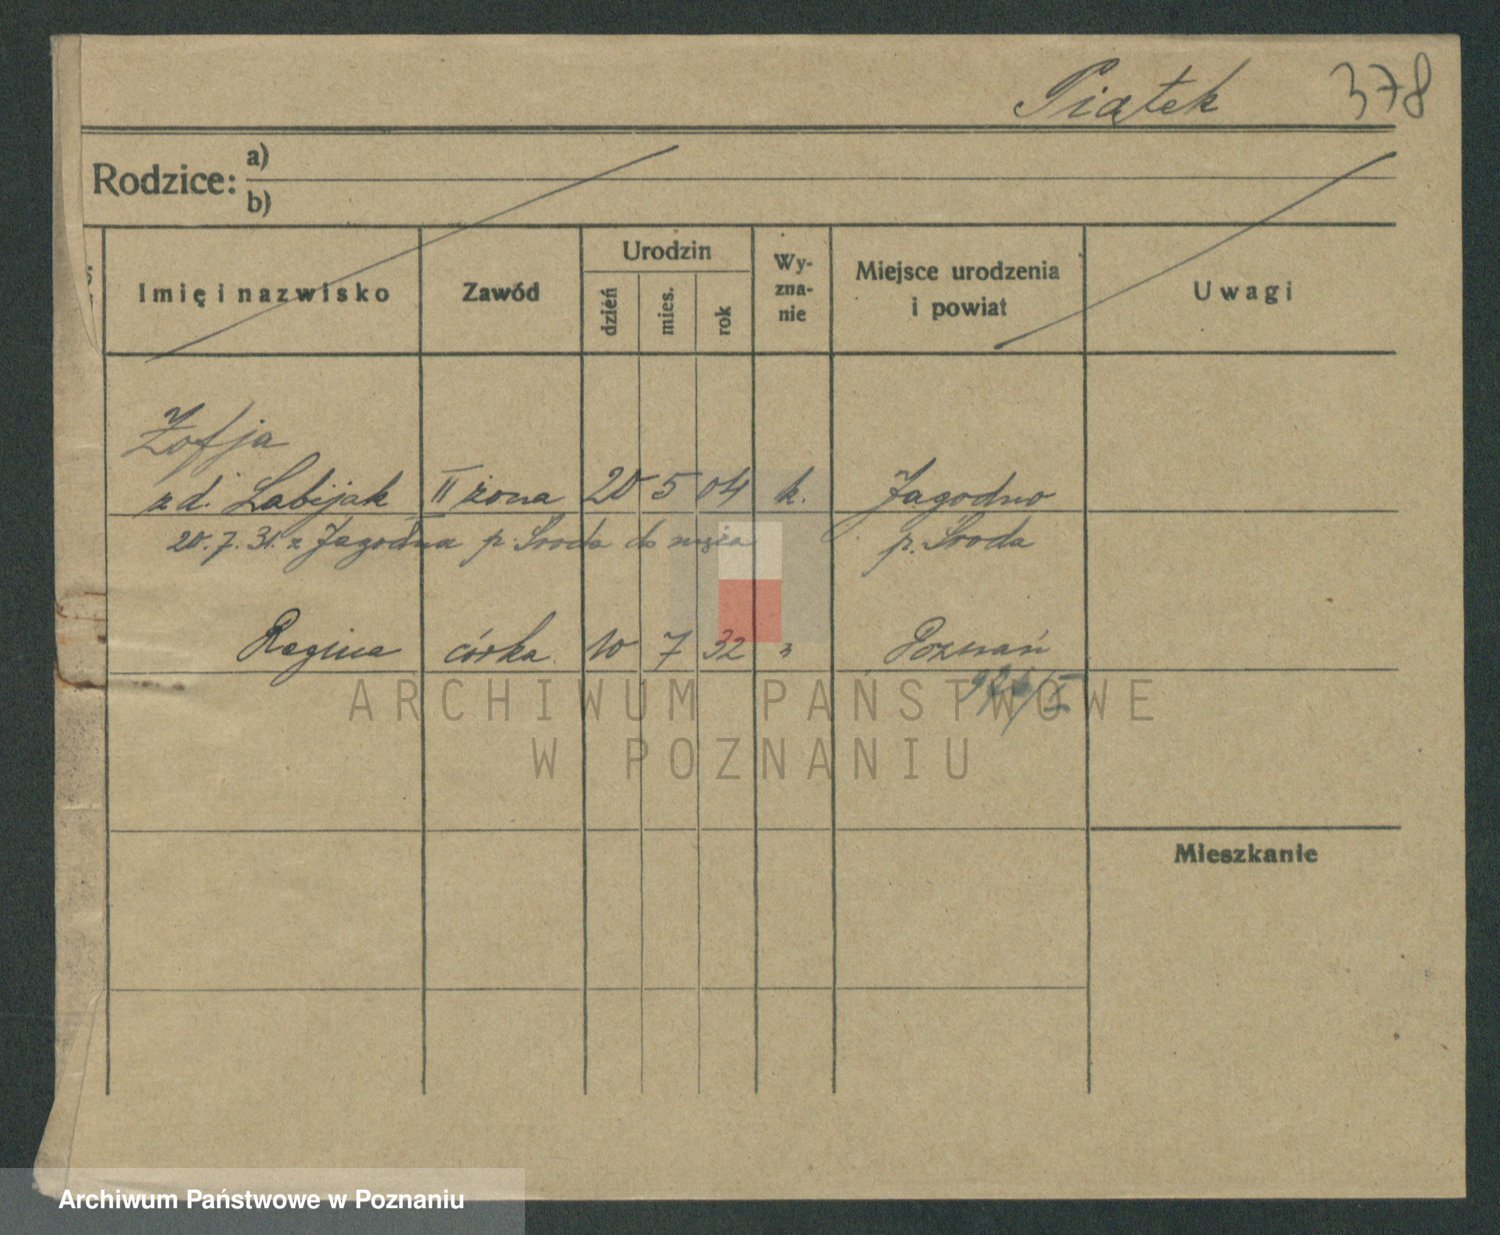 Piątek 378
Rodzice: a)
b)
Imię i nazwisko Zawód Urodzin dzień mies. rok Wy-zna-nie Miejsce urodzenia i powiat Uwagi
Zofja
z d. Labijak II żona 20 5 04 k. Jagodno
20.7.31. z Jagodna p. Środa do męża p. Środa
Regina córka 10 7 32 " Poznań
ARCHIWUM PAŃSTWOWE
W POZNANIU
Mieszkanie
Archiwum Państwowe w Poznaniu